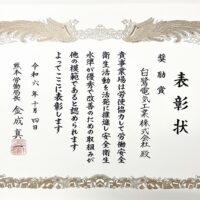 表彰状
奨励賞
白鷺電気工業株式会社 殿
貴事業場は労使協力して労働安全
衛生活動を活発に推進し安全衛生
水準が優秀で改善のための取組が
他の模範であると認められます
よってここに表彰します
令和六年十月四日
熊本労働局長 金成真一